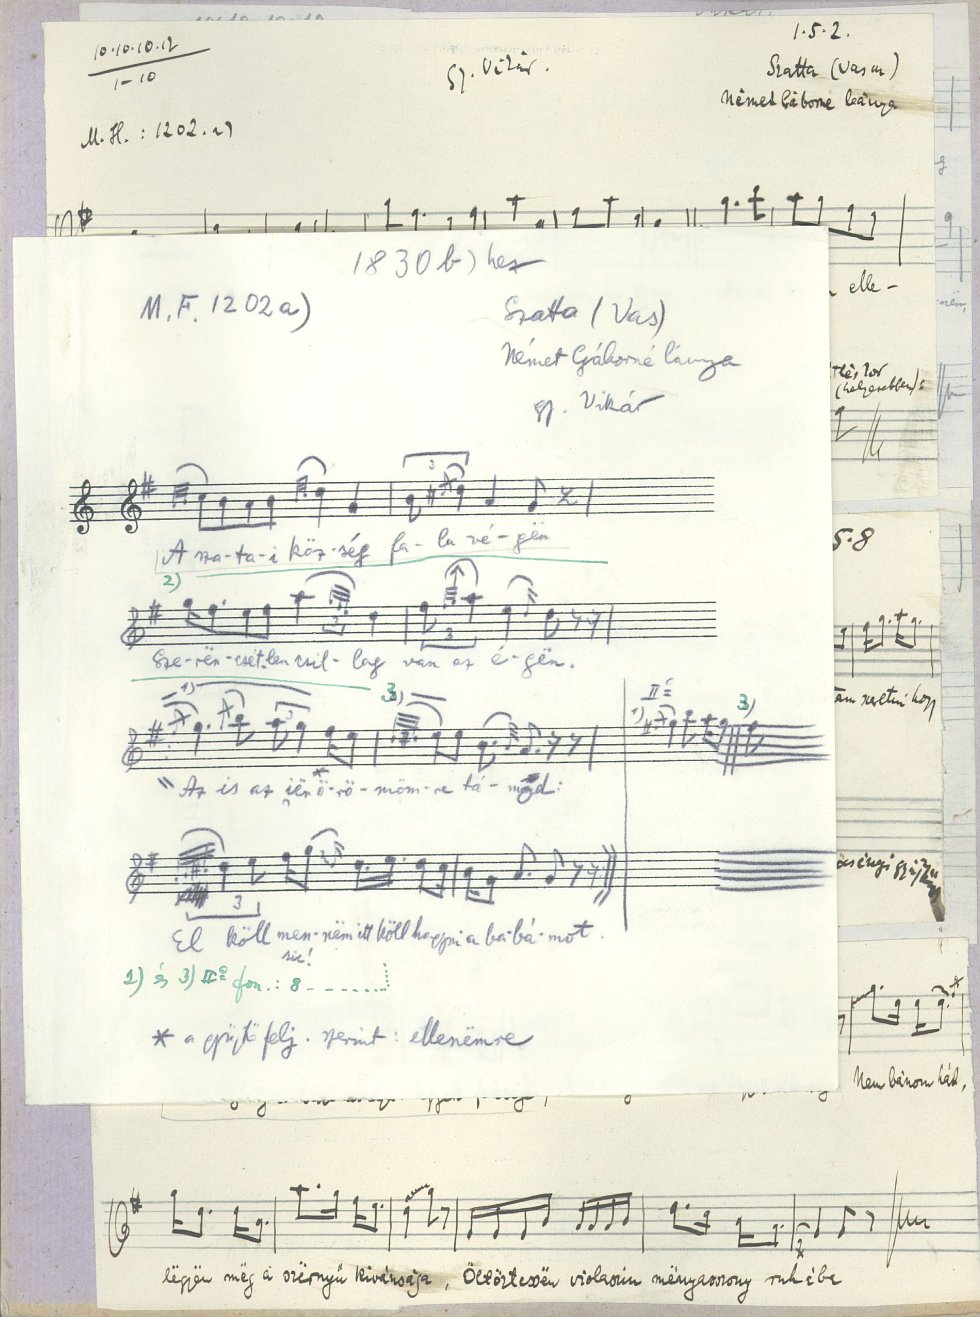 10.10.10.12
1-10
1.5.2.
Gy. Vikár.
Szatta (Vas m)
Német Gáborné leánya
M.H.: 1202. a)
elle-
1830 b) hez
M.F. 1202 a)
Szatta (Vas)
Német Gáborné lánya
gy. Vikár
3
A sza-ta-i köz-ség fa-lu vé-gën
2)
3
Sze-rën-csét-len csil-lag van az é-gën.
1) 3)
IIº
1) 3)
Az is az ién ö-rö-möm-re tá-mod:
3
El köll men-nëm itt köll hagyni a ba-bá-mot.
sic!
1) és 3) IIº fon.: 8
* a gyűjtő felj. szerint: ellenëmre
5.8
(helyesebben):
Nem bánom hát,
lëgyën még a szërnyű kivánsága, Öltöztessën violaszín mënyasszony ruhába